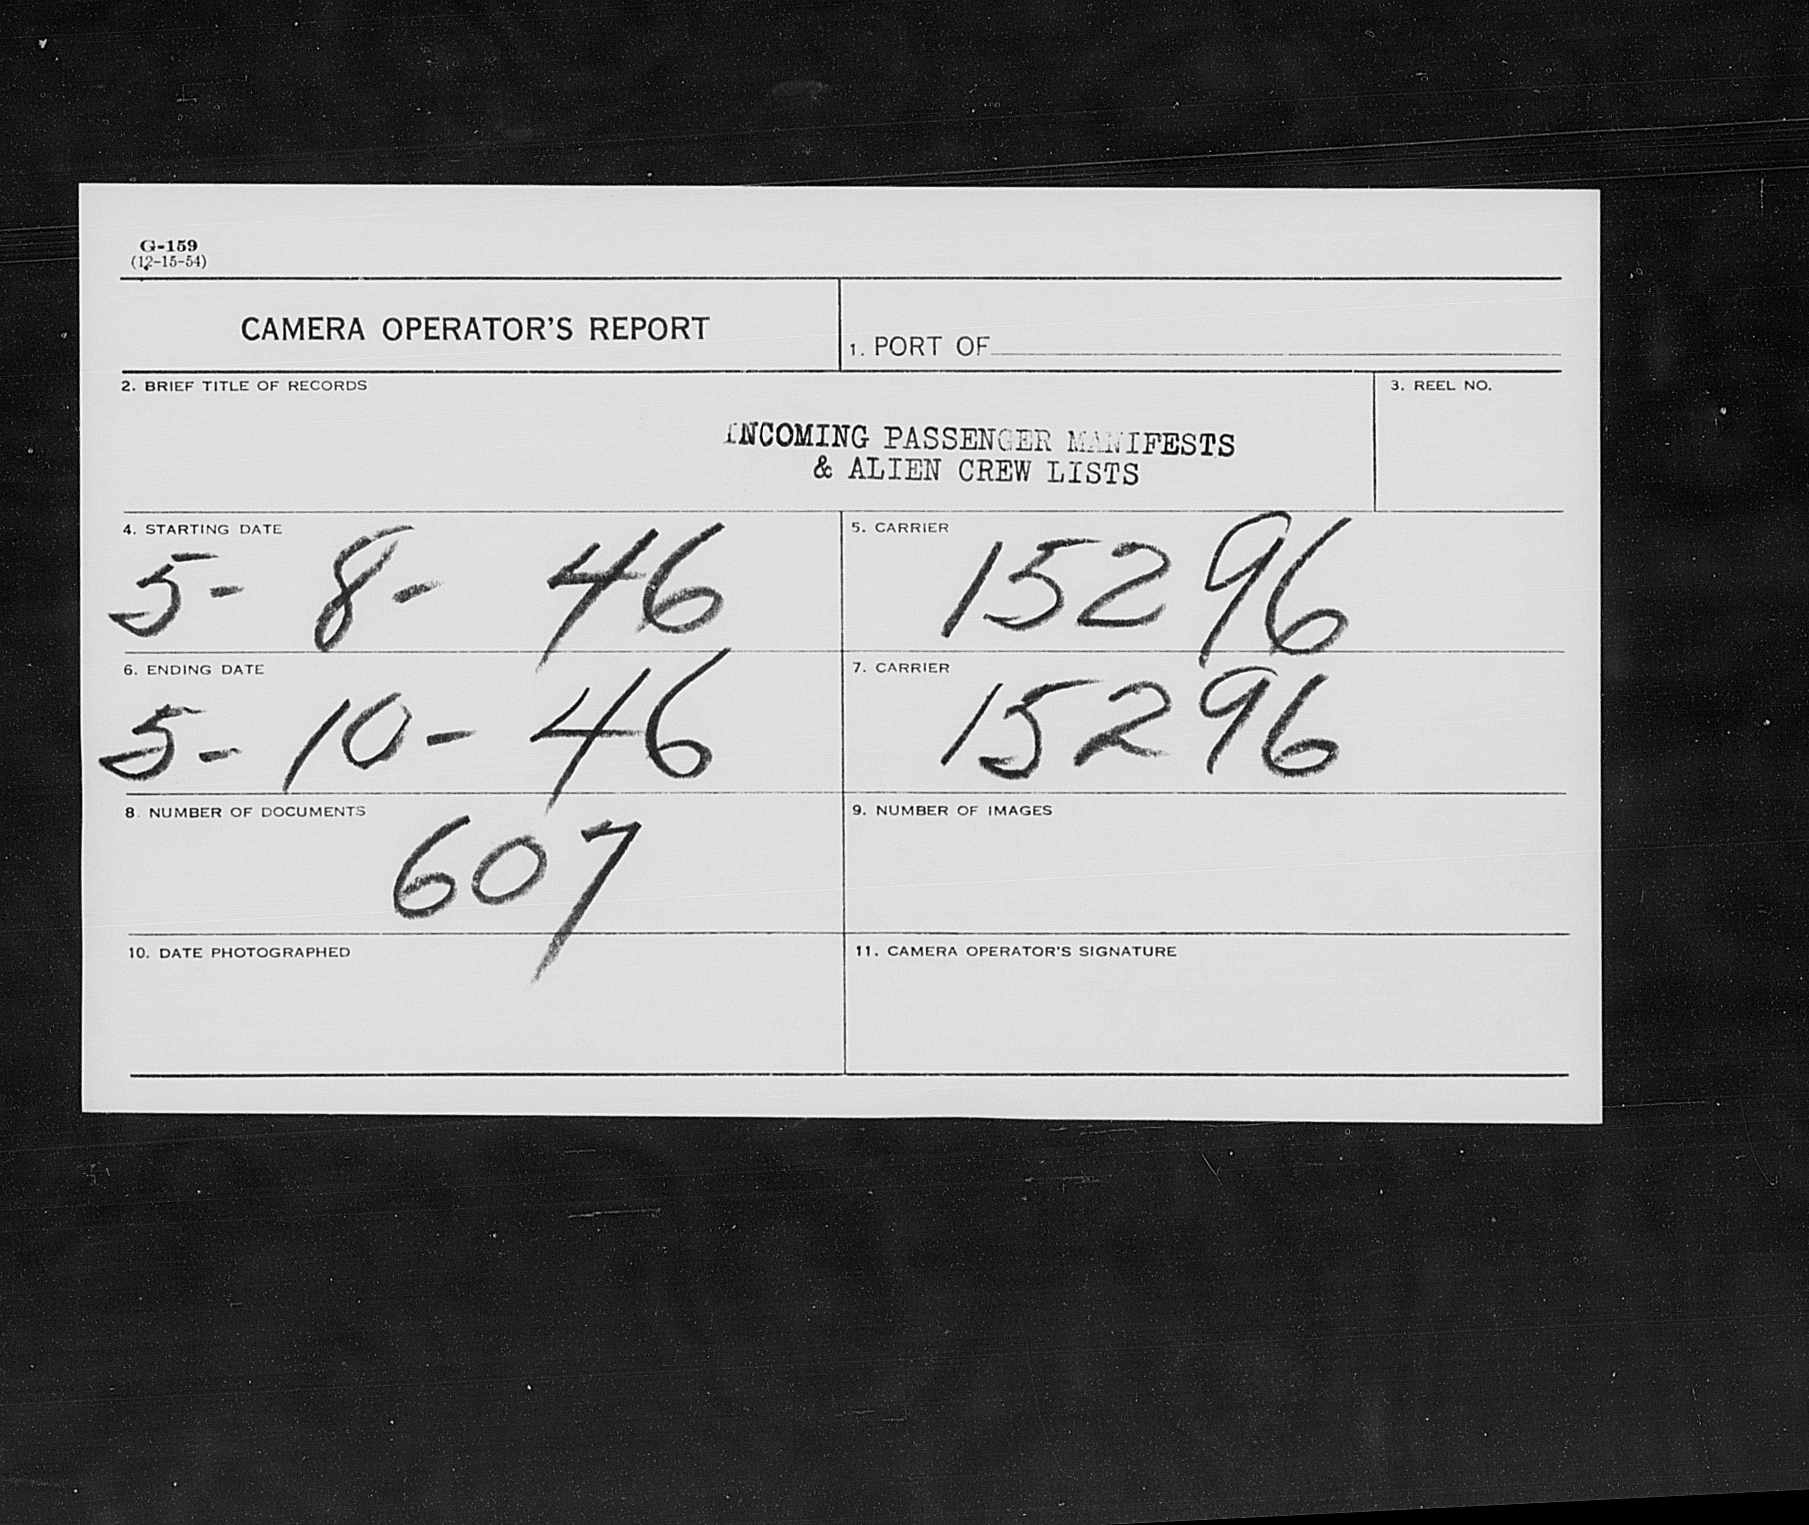 G-159
(12-15-54)
CAMERA OPERATOR'S REPORT
1. PORT OF
2. BRIEF TITLE OF RECORDS
3. REEL NO.
INCOMING PASSENGER MANIFESTS
& ALIEN CREW LISTS
4. STARTING DATE
5-8-46
5. CARRIER
15296
6. ENDING DATE
5-10-46
7. CARRIER
15296
8. NUMBER OF DOCUMENTS
607
9. NUMBER OF IMAGES
10. DATE PHOTOGRAPHED
11. CAMERA OPERATOR'S SIGNATURE